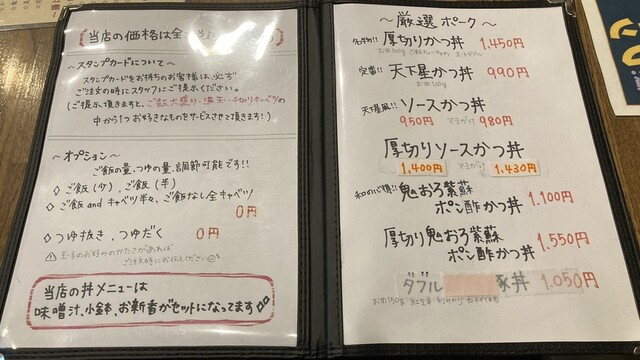 当店の価格は全
～スタンプカードについて～
スタンプカードをお持ちのお客様は、必ず
ご注文の時にスタッフにご提示ください。
(ご提示頂きますと、ご飯大盛り・温玉・千切りキャベツの
中から1つお好きなものをサービスさせて頂きます!)
～オプション～
ご飯の量、つゆの量、調節可能です!!
◇ご飯(少)、ご飯(半)
◇ご飯andキャベツ半々、ご飯なし全キャベツ
0円
◇つゆ抜き、つゆだく 0円
玉子のお好みのかたさがあれば
ご注文時にお伝えください
当店の丼メニューは
味噌汁、小鉢、お新香がセットになってます
～厳選ポーク～
名物!! 厚切りかつ丼 1,450円
定番!! 天下星かつ丼 990円
お肉100g
天下星風!! ソースかつ丼
950円 マヨがけ 980円
厚切りソースかつ丼
1,400円 マヨがけ 1,430円
和の心!! 鬼おろ紫蘇
ポン酢かつ丼 1,100円
厚切り鬼おろ紫蘇
ポン酢かつ丼 1,550円
ダブル 豚丼 1,050円